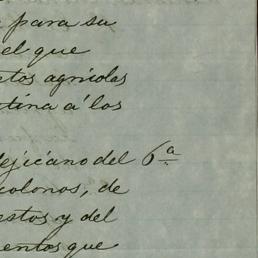 para su
el que
etos agrícolas
tina á los
ejicano del 6ª
colonos, de
estos y del
entos que